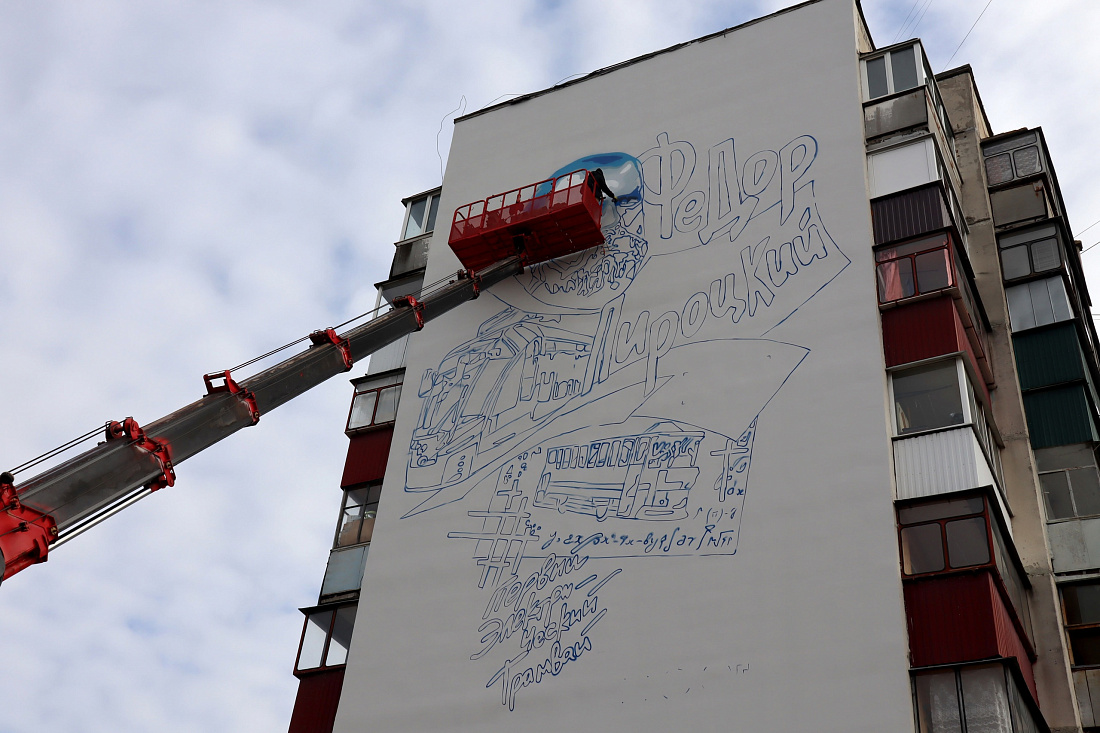 Федор
Пироцкий
Первий
Электри-
ческий
Трамвай